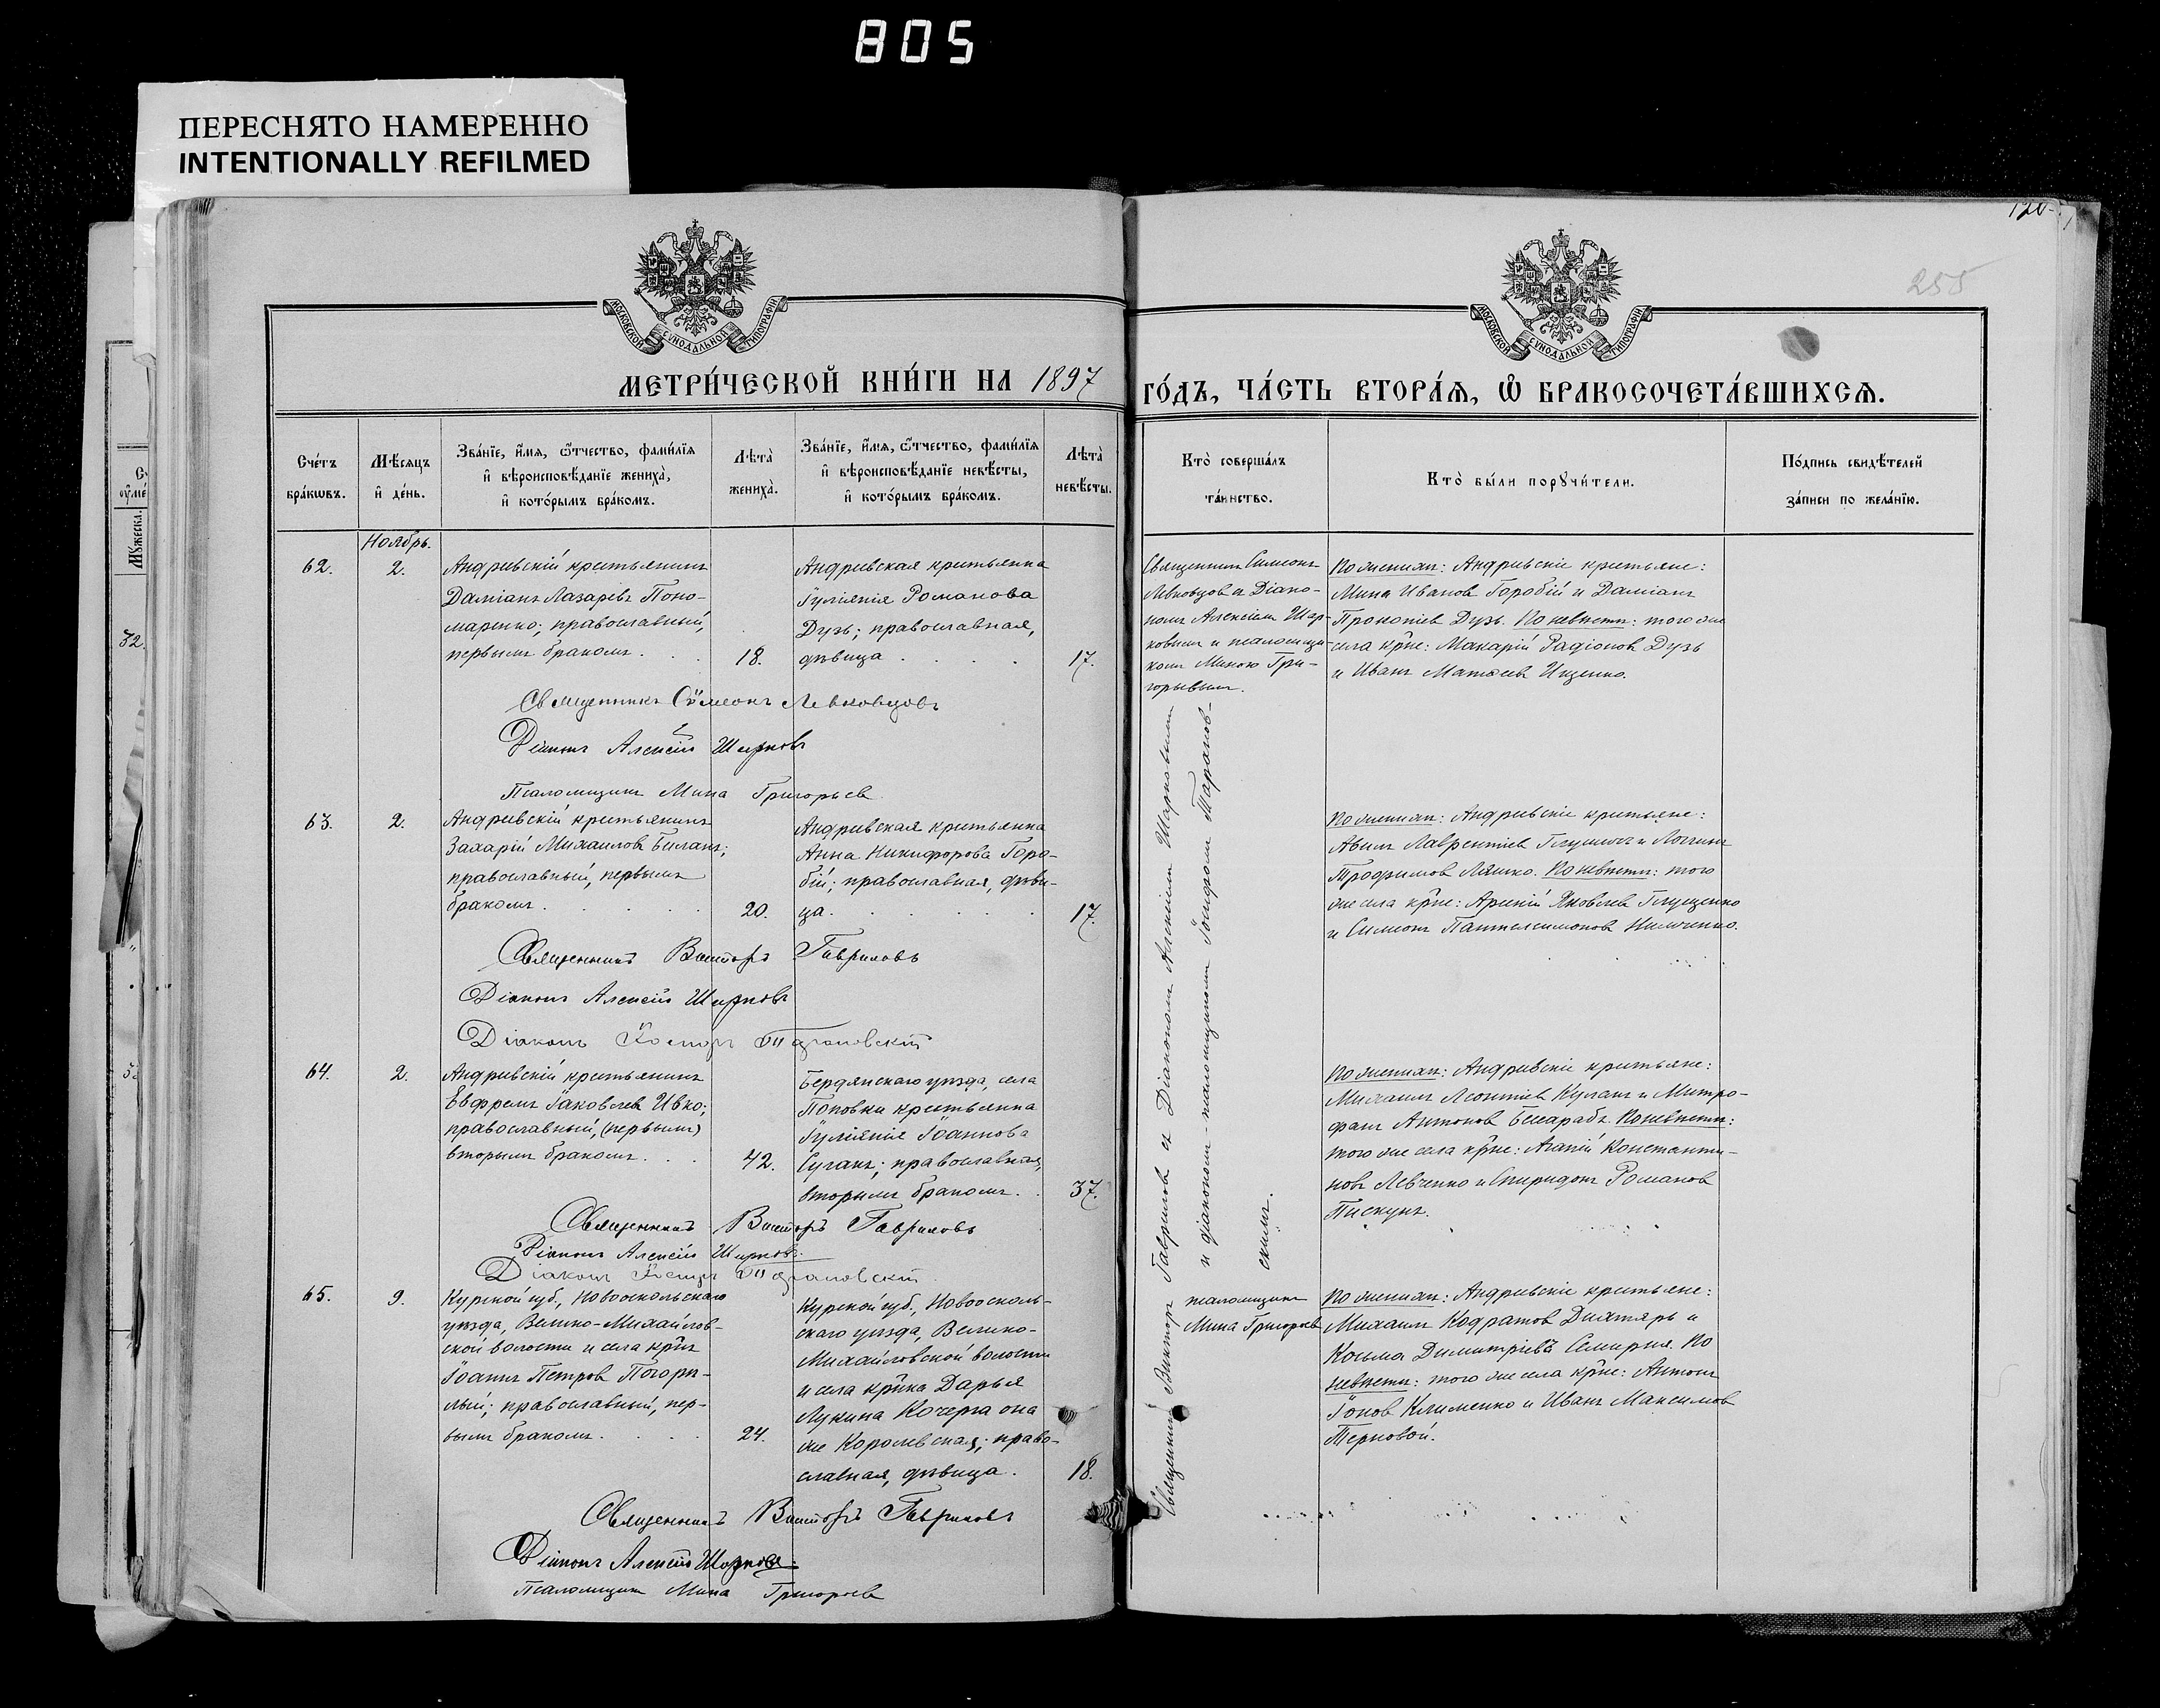 805
ПЕРЕСНЯТО НАМЕРЕННО
INTENTIONALLY REFILMED
120
255
МОСКОВСКОЙ СУНОДАЛЬНОЙ ТИПОГРАФІИ
МОСКОВСКОЙ СУНОДАЛЬНОЙ ТИПОГРАФІИ
МЕТРИ́ЧЕСКОЙ КНИ́ГИ НА 1897 ГО́ДЪ, ЧА́СТЬ ВТОРА́Я, Ѡ БРАКОСОЧЕТА́ВШИХСЯ.
Сче́тъ бра́кѡвъ.
Мѣ́сяцъ и҆ де́нь.
Зва́нїе, и҆́мя, ѻ҆́тчество, фами́лїя и҆ вѣроисповѣ́данїе жениха̀, и҆ кото́рымъ бра́комъ.
Лѣта̀ жениха̀.
Зва́нїе, и҆́мя, ѻ҆́тчество, фами́лїя и҆ вѣроисповѣ́данїе невѣ́сты, и҆ кото́рымъ бра́комъ.
Лѣта̀ невѣ́сты.
Кто̀ соверша́лъ та́инство.
Кто̀ бы́ли порꙋчи́тели.
По́дпись свидѣ́телей за́писи по жела́нїю.
Ноябрь.
62.
2.
Андреевскій крестьянинъ
Даміанъ Лазаревъ Поно-
маренко; православный,
первымъ бракомъ
18.
Андреевская крестьянка
Іуліянія Романова
Дузь; православная,
дѣвица
17.
Священник Симеонъ
Левковцов съ Діако-
ном Алексіем Шар-
ковым и псаломщи-
ком Миною Гри-
горьевым.
По женихѣ: Андреевскіе крестьяне:
Мина Иванов Горобій и Даміанъ
Прокопіев Дузь. По невѣстѣ: того же
села кр̃не: Макарій Радіонов Дузь
и Иванъ Матѳеев Ищенко.
Священникъ Сѵмеонъ Левковцовъ
Діаконъ Алексій Шарковъ
Псаломщик Мина Григорьев
63.
2.
Андреевскій крестьянинъ
Захарій Михаилов Биланъ;
православный, первымъ
бракомъ
20.
Андреевская крестьянка
Анна Никифорова Горо-
бій; православная, дѣви-
ца
17.
По женихѣ: Андреевскіе крестьяне:
Трофимов Ляшко. По невѣстѣ: того
же села кр̃не: Арсеній Яковлев Глущенко
и Симеонъ Пантелеимонов
Священникъ Викторъ Гавриловъ
Діаконъ Алексій Шарковъ
Діаконъ Тарановскій
64.
2.
Андреевскій крестьянинъ
Евфремъ Іаковлев Ивко;
православный, (первымъ)
вторымъ бракомъ
42.
Бердянскаго уѣзда, села
Поповки крестьянка
Іуліянія Іоаннова
Суганъ; православная,
вторымъ бракомъ
37.
По женихѣ: Андреевскіе крестьяне:
Михаилъ Леонтіев Куланъ и Митро-
фанъ Антонов Бесараб. По невѣстѣ:
того же села кр̃не: Агапій Константи-
новъ Левченко и Спиридонъ Романов
Пискунъ.
Священникъ Викторъ Гавриловъ
Діаконъ Алексій Шарковъ
Діаконъ Тарановскій
Священник Виктор Гаврилов съ Діаконом Алексіем Шарковым
и діаконом-псаломщиком Таранов-
ским.
65.
9.
Курской губ., Новооскольскаго
уѣзда, Велико-Михайлов-
ской волости и села кр̃нъ
Іоаннъ Петров Погорѣ-
лый; православный, пер-
вымъ бракомъ
24.
Курской губ., Новоосколь-
скаго уѣзда, Велико-
Михайловской волости
и села кр̃нка Дарья
Лукина Кочерга она
же Королевская; право-
славная, дѣвица
18.
псаломщик
Мина Григорьев
По женихѣ: Андреевскіе крестьяне:
Михаилъ Кодратов Дихтярь и
Козьма Димитріевъ Семирня. По
невѣстѣ: того же села кр̃не: Антонъ
Іонов Клименко и Иванъ Максимов
Терновой.
Священникъ Викторъ Гавриловъ
Діаконъ Алексій Шарковъ
Псаломщик Мина Григорьев